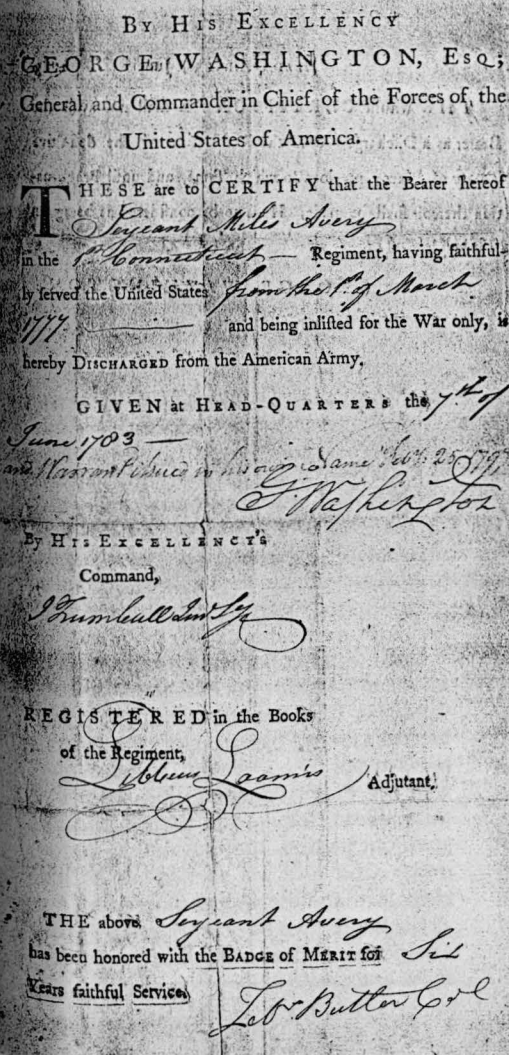 By His Excellency
GEORGE WASHINGTON, Esq;
General and Commander in Chief of the Forces of the
United States of America.
THESE are to CERTIFY that the Bearer hereof
Serjeant Miles Avery
in the 1st Connecticut — Regiment, having faithful-
ly ſerved the United States from the 1st of March
1777 — and being inliſted for the War only, is
hereby Discharged from the American Army.
GIVEN at Head-Quarters the 7th of
June 1783 —
and Warrant issued in his own name Nov. 25 1797
G Washington
By His Excellency's
Command,
J Trumbull Jun Sy
REGISTERED in the Books
of the Regiment,
Libbeus Loomis Adjutant,
THE above Serjeant Avery
has been honored with the Badge of Merit for Six
Years faithful Service.
Zebn Butler Col